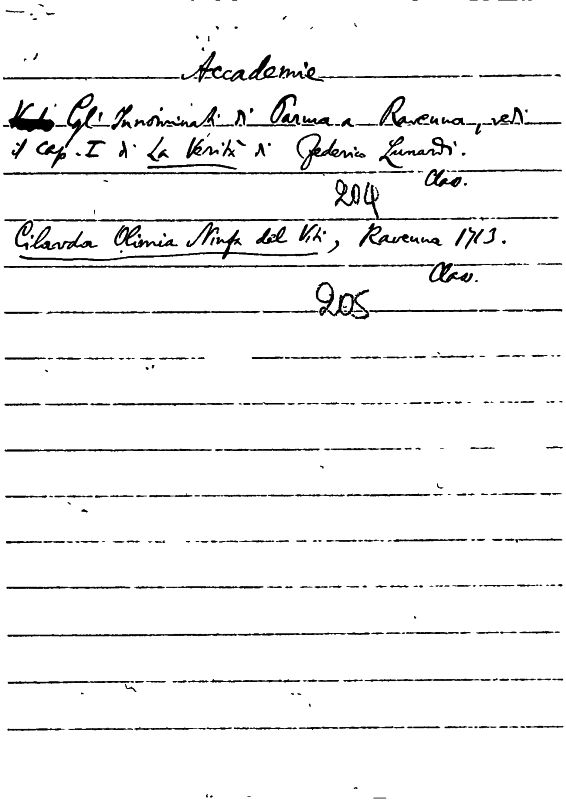 Accademie
Gl'Innominati di Parma a Ravenna, vedi
il cap. I di La Verità di Federico Lunardi.
Class.
204
Cilarda Olimia Ninfa del Viti, Ravenna 1713.
Class.
205